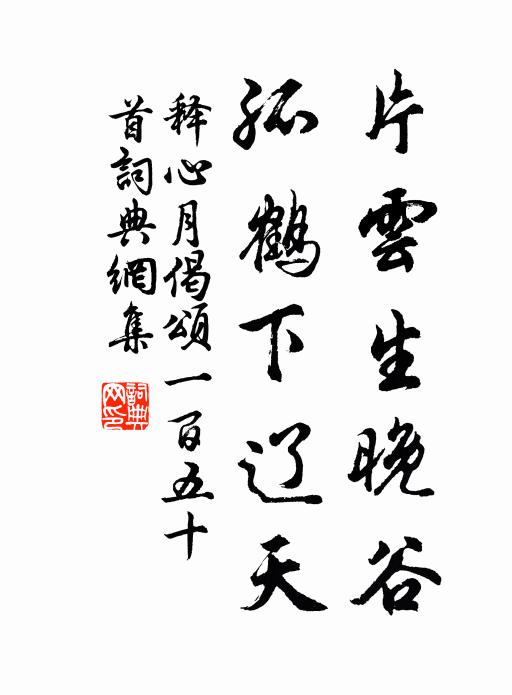 片雲生晚谷
孤鶴下辽天
释心月偈頌一百五十
首詞典網集
詞典
网印